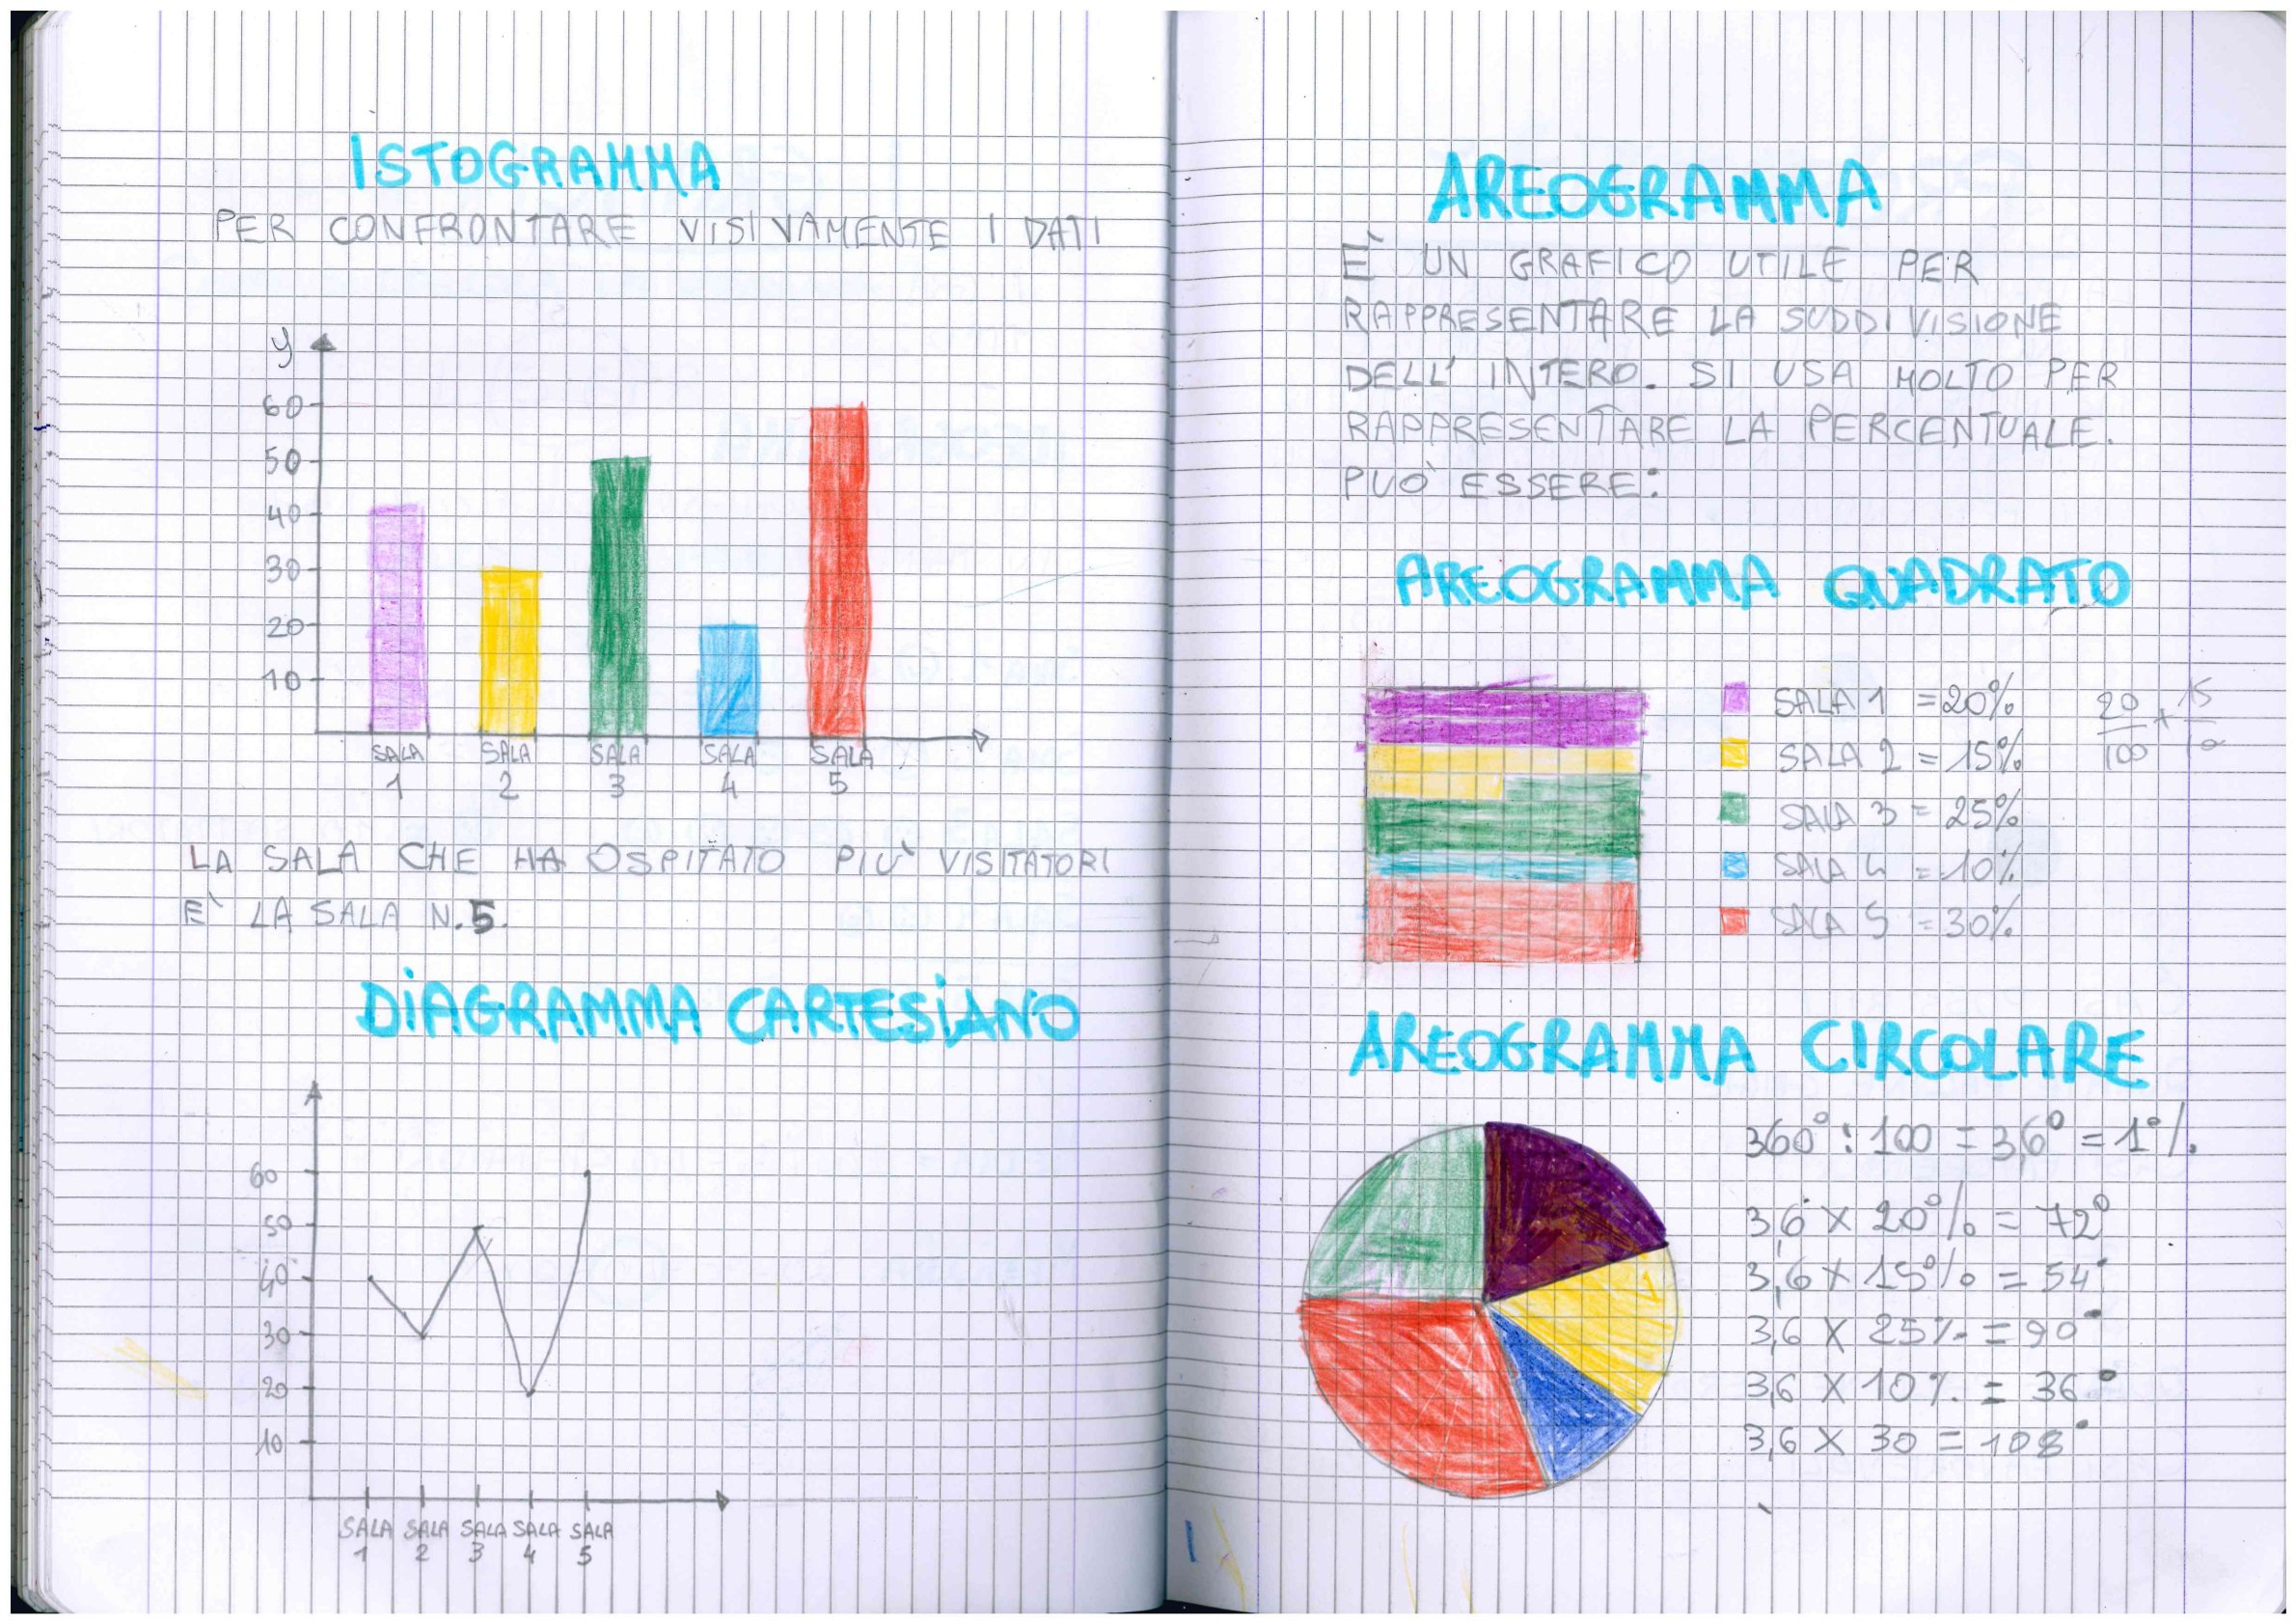 ISTOGRAMMA
PER CONFRONTARE VISIVAMENTE I DATI
y
60
50
40
30
20
10
SALA SALA SALA SALA SALA
1 2 3 4 5
LA SALA CHE HA OSPITATO PIU' VISITATORI
E' LA SALA N.5.
DIAGRAMMA CARTESIANO
60
50
40
30
20
10
SALA SALA SALA SALA SALA
1 2 3 4 5
AREOGRAMMA
E' UN GRAFICO UTILE PER
RAPPRESENTARE LA SUDDIVISIONE
DELL' INTERO. SI USA MOLTO PER
RAPPRESENTARE LA PERCENTUALE.
PUO' ESSERE:
AREOGRAMMA QUADRATO
SALA 1 = 20%
SALA 2 = 15%
SALA 3 = 25%
SALA 4 = 10%
SALA 5 = 30%
20/100 + 15/10
AREOGRAMMA CIRCOLARE
360° : 100 = 3,6° = 1%.
3,6 X 20% = 72°
3,6 X 15% = 54°
3,6 X 25% = 90°
3,6 X 10% = 36°
3,6 X 30 = 108°